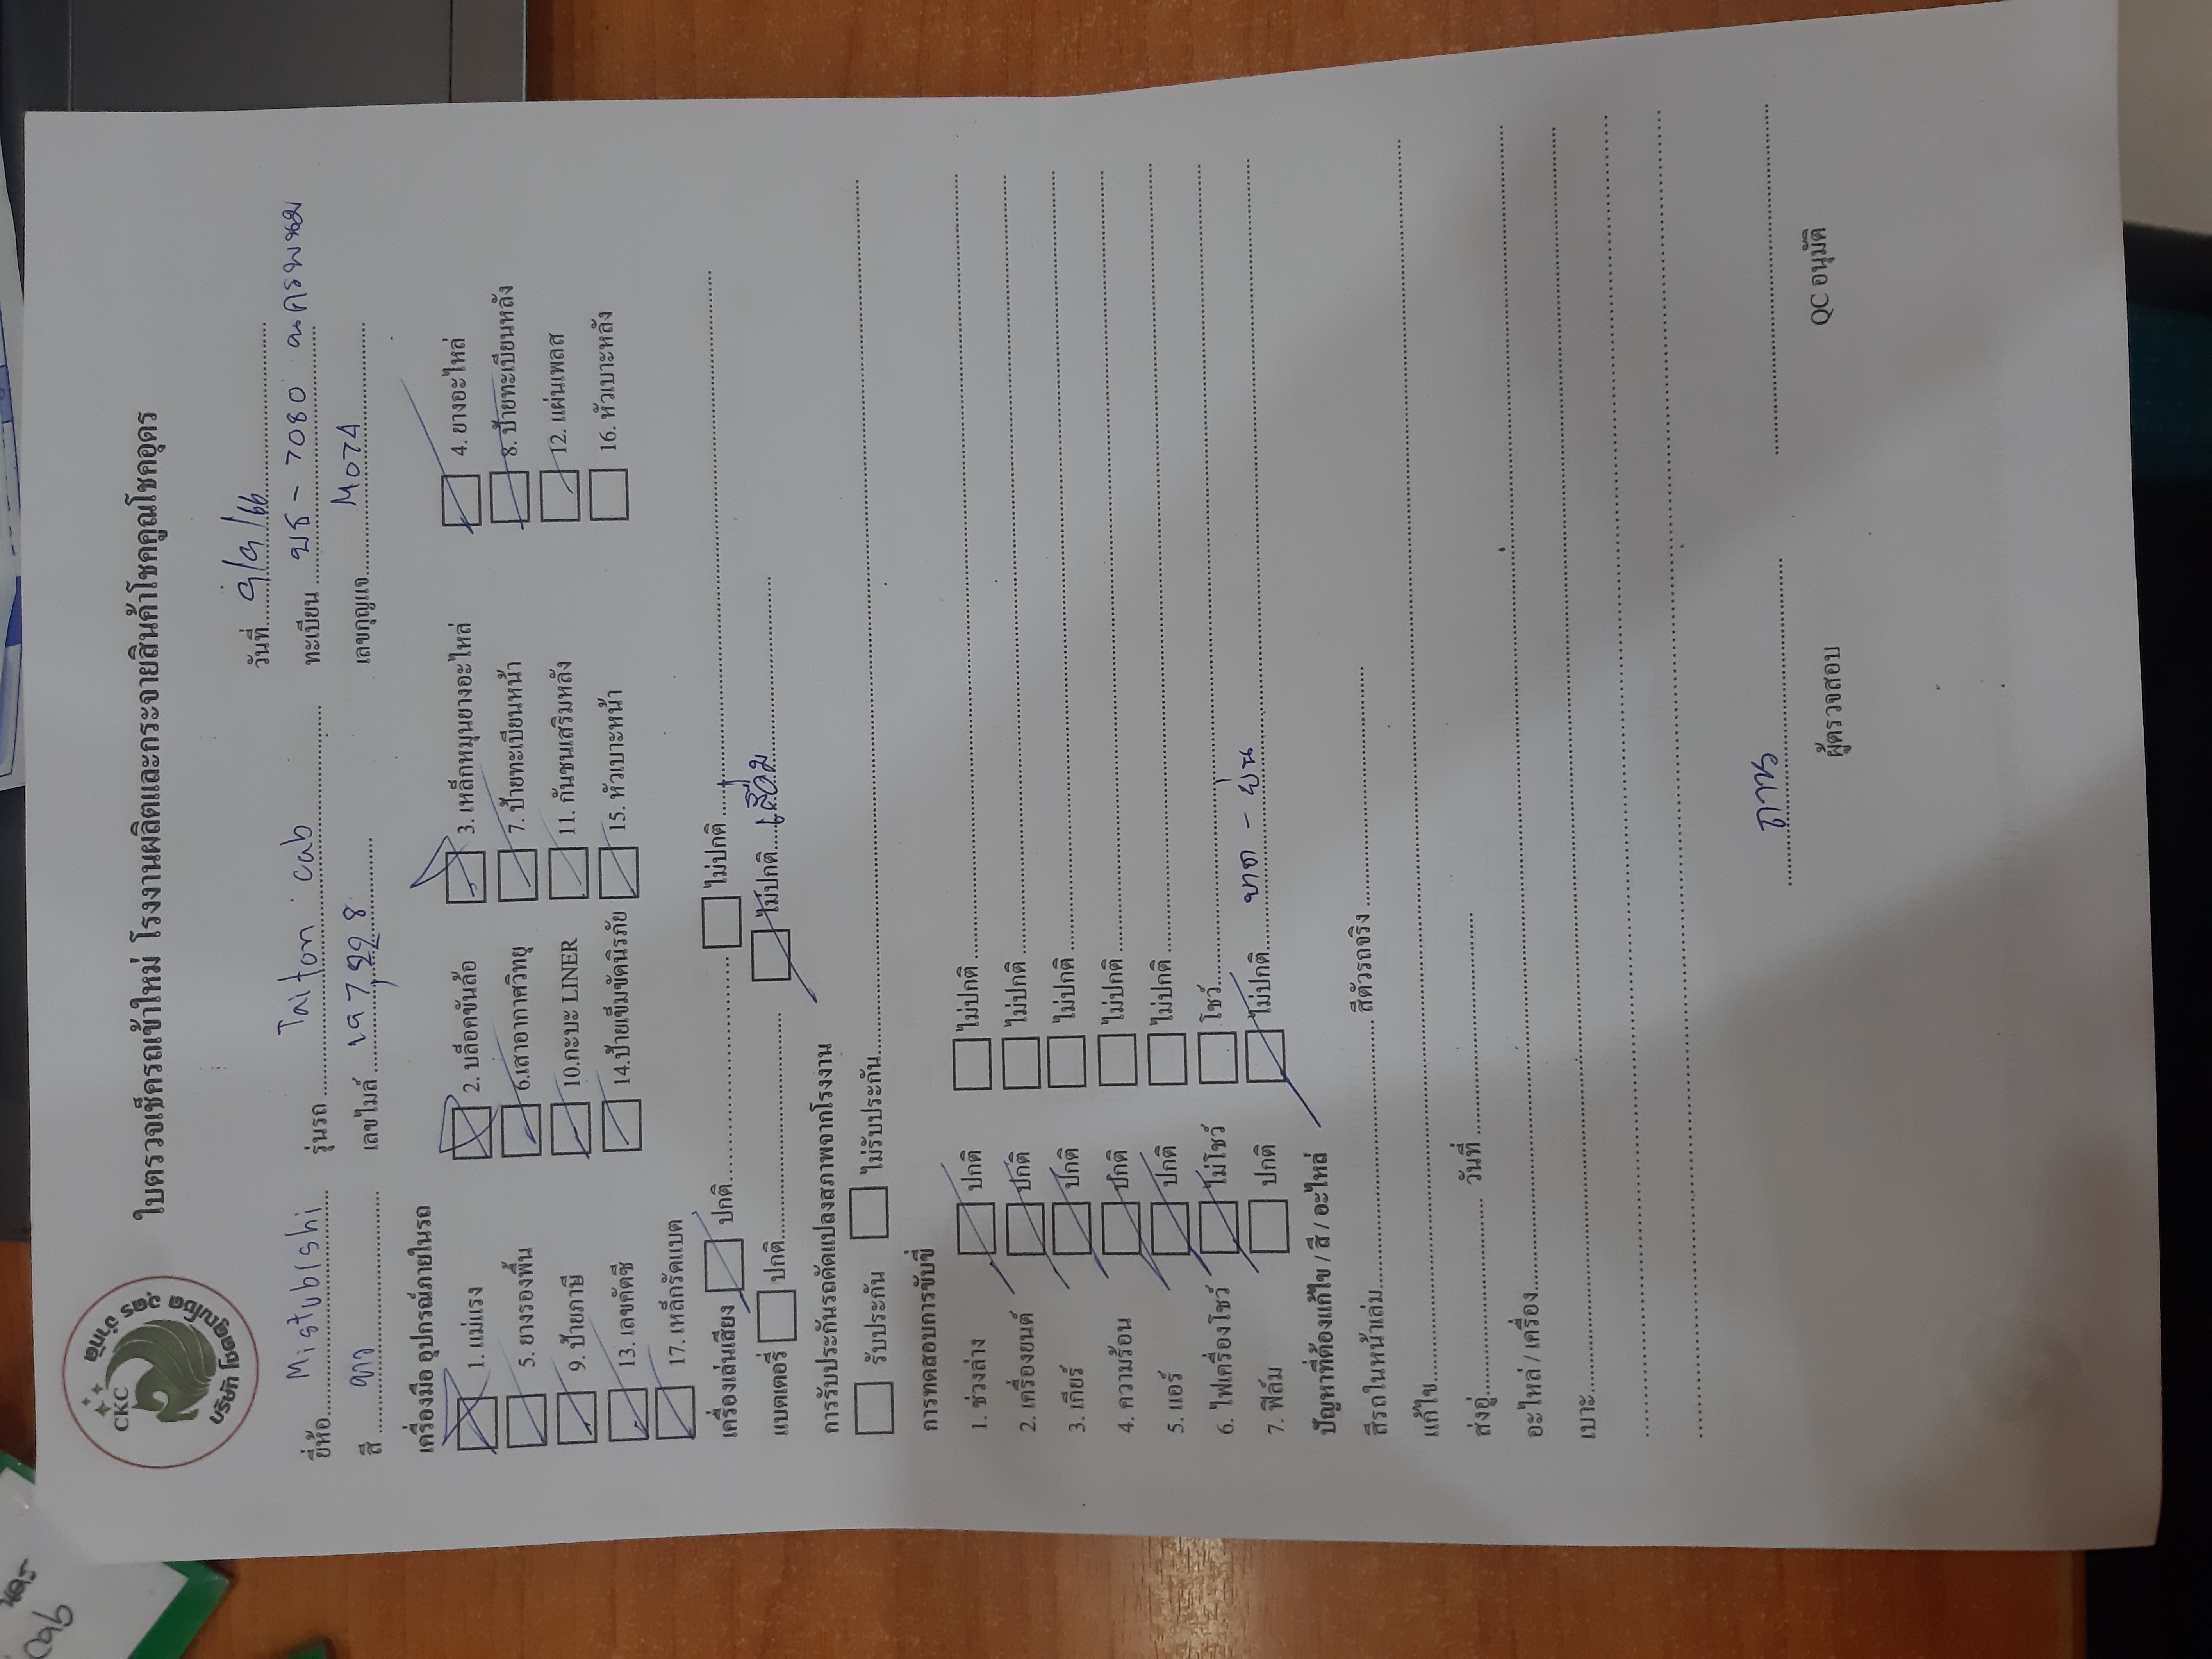 CKC
บริษัท โชคคูณโชค อุดร จำกัด
ใบตรวจเช็ครถเข้าใหม่ โรงงานผลิตและกระจายสินค้าโชคคูณโชคอุดร
วันที่
ยี่ห้อ Mistubishi รุ่นรถ Taiton cab ทะเบียน บธ - 7080 นครพนม
สี ขาว เลขไมล์ เลขกุญแจ M074
เครื่องมือ อุปกรณ์ภายในรถ
1. แม่แรง 2. บล็อคขันล้อ 3. เหล็กหมุนยางอะไหล่ 4. ยางอะไหล่
5. ยางรองพื้น 6.เสาอากาศวิทยุ 7. ป้ายทะเบียนหน้า 8. ป้ายทะเบียนหลัง
9. ป้ายภาษี 10.กะบะ LINER 11. กันชนเสริมหลัง 12. แผ่นเพลส
13. เลขคัตซี 14.ป้ายเข็มขัดนิรภัย 15. หัวเบาะหน้า 16. หัวเบาะหลัง
17. เหล็กรัดแบต
เครื่องเล่นเสียง ปกติ ไม่ปกติ
แบตเตอรี่ ปกติ ไม่ปกติ เสื่อม
การรับประกันรถดัดแปลงสภาพจากโรงงาน
รับประกัน ไม่รับประกัน
การทดสอบการขับขี่
1. ช่วงล่าง ปกติ ไม่ปกติ
2. เครื่องยนต์ ปกติ ไม่ปกติ
3. เกียร์ ปกติ ไม่ปกติ
4. ความร้อน ปกติ ไม่ปกติ
5. แอร์ ปกติ ไม่ปกติ
6. ไฟเครื่องโชว์ ไม่โชว์ โชว์
7. ฟิล์ม ปกติ ไม่ปกติ ขาด - ย่น
ปัญหาที่ต้องแก้ไข / สี / อะไหล่
สีรถในหน้าเล่ม สีตัวรถจริง
แก้ไข
ส่งอู่ วันที่
อะไหล่ / เครื่อง
เบาะ
ผู้ตรวจสอบ QC อนุมัติ